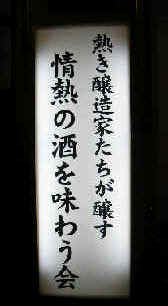 熱き醸造家たちが醸す
情熱の酒を味わう会